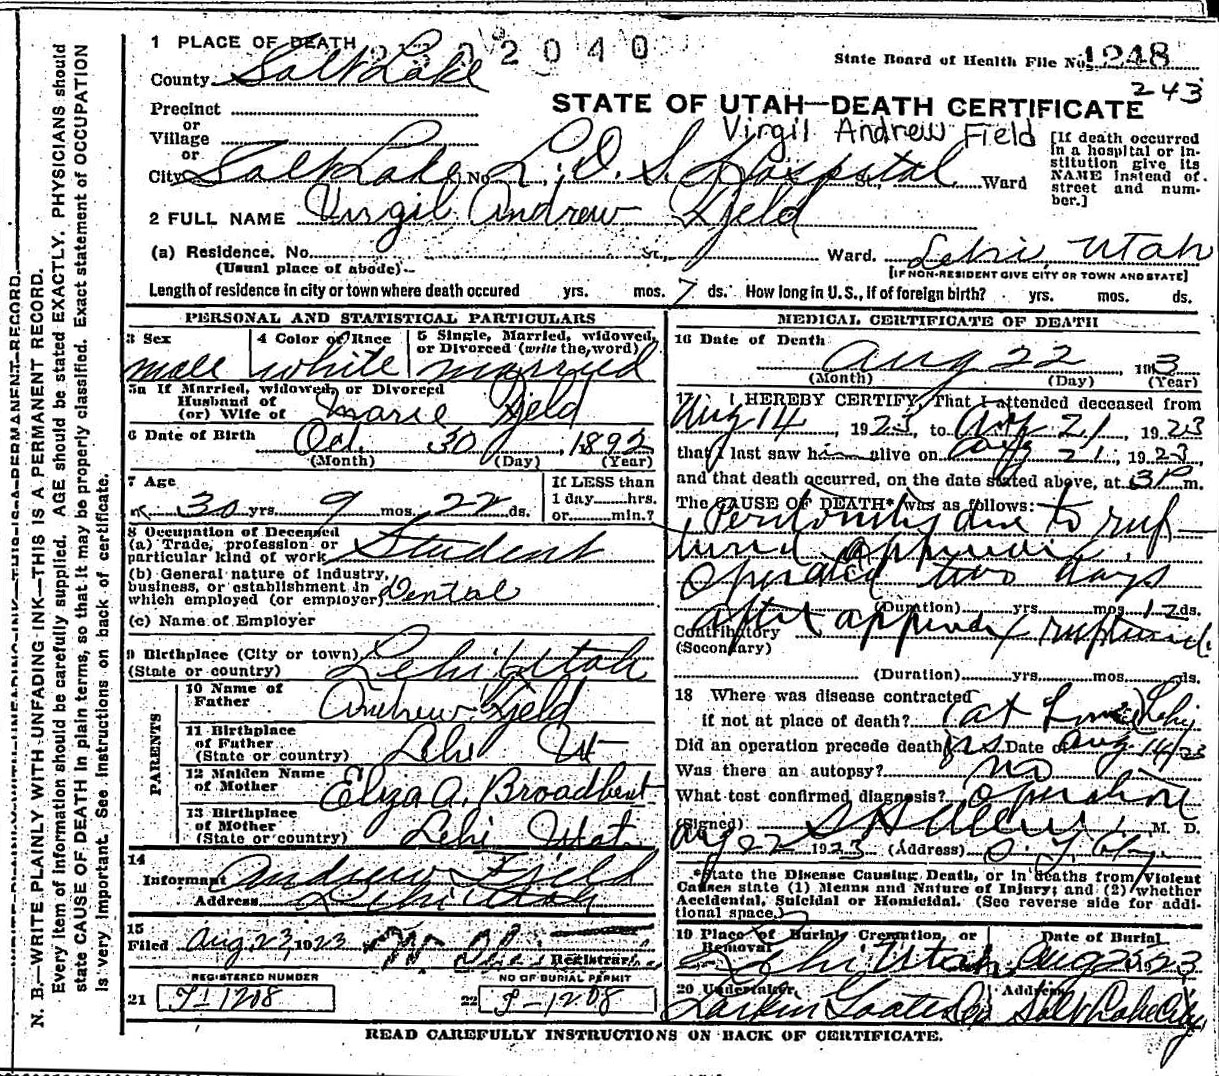 1 PLACE OF DEATH 2302040
County Salt Lake State Board of Health File No. 1248
243
Precinct
STATE OF UTAH—DEATH CERTIFICATE
or
Village Virgil Andrew Field
or
City Salt Lake No. L.D.S. Hospital St., Ward
[If death occurred in a hospital or institution give its NAME instead of street and number.]
2 FULL NAME Virgil Andrew Fjeld
(a) Residence. No. St., Ward. Lehi, Utah
(Usual place of abode) [IF NON-RESIDENT GIVE CITY OR TOWN AND STATE]
Length of residence in city or town where death occured yrs. mos. 7 ds. How long in U. S., if of foreign birth? yrs. mos. ds.
PERSONAL AND STATISTICAL PARTICULARS
3 Sex male
4 Color or Race white
5 Single, Married, widowed, or Divorced (write the word) married
5a If Married, widowed, or Divorced
Husband of
(or) Wife of Marie Fjeld
6 Date of Birth Oct. 30, 1892
(Month) (Day) (Year)
7 Age
30 yrs. 9 mos. 22 ds.
If LESS than
1 day hrs.
or min.?
8 Occupation of Deceased
(a) Trade, profession or
particular kind of work Student
(b) General nature of industry,
business, or establishment in
which employed (or employer) Dental
(c) Name of Employer
9 Birthplace (City or town)
(State or country) Lehi Utah
PARENTS
10 Name of
Father Andrew Fjeld
11 Birthplace
of Father
(State or country) Lehi Ut
12 Maiden Name
of Mother Eliza A. Broadbent
13 Birthplace
of Mother
(State or country) Lehi Utah
14
Informant Andrew Field
Address Lehi Utah
15
Filed Aug 23, 1923
Registrar
REGISTERED NUMBER NO OF BURIAL PERMIT
21 J-1208 22 J-1208
MEDICAL CERTIFICATE OF DEATH
16 Date of Death
Aug 22, 1923
(Month) (Day) (Year)
17 I HEREBY CERTIFY, That I attended deceased from
Aug 14, 1923, to Aug 21, 1923
that I last saw him alive on Aug 21, 1923
and that death occurred, on the date stated above, at 31P m.
The CAUSE OF DEATH* was as follows:
Peritonitis due to rup-
tured appendix.
Operated two days
(Duration) yrs. mos. 12 ds.
after appendix ruptured.
Contributory
(Secondary)
(Duration) yrs. mos. ds.
18 Where was disease contracted
if not at place of death? (at home) Lehi
Did an operation precede death? yes Date of Aug 14/23
Was there an autopsy? no
What test confirmed diagnosis? operation
(Signed) M. D.
Aug 22 1923 (Address)
*State the Disease Causing Death, or in deaths from Violent
Causes state (1) Means and Nature of Injury; and (2) whether
Accidental, Suicidal or Homicidal. (See reverse side for addi-
tional space.)
19 Place of Burial, Cremation, or
Removal
Lehi Utah
Date of Burial
Aug 25 1923
20 Undertaker, Address
Salt Lake City
READ CAREFULLY INSTRUCTIONS ON BACK OF CERTIFICATE.
WRITE PLAINLY WITH UNFADING INK—THIS IS A PERMANENT RECORD.
N. B.—WRITE PLAINLY WITH UNFADING INK—THIS IS A PERMANENT RECORD.
Every item of information should be carefully supplied. AGE should be stated EXACTLY. PHYSICIANS should
state CAUSE OF DEATH in plain terms, so that it may be properly classified. Exact statement of OCCUPATION
is very important. See instructions on back of certificate.